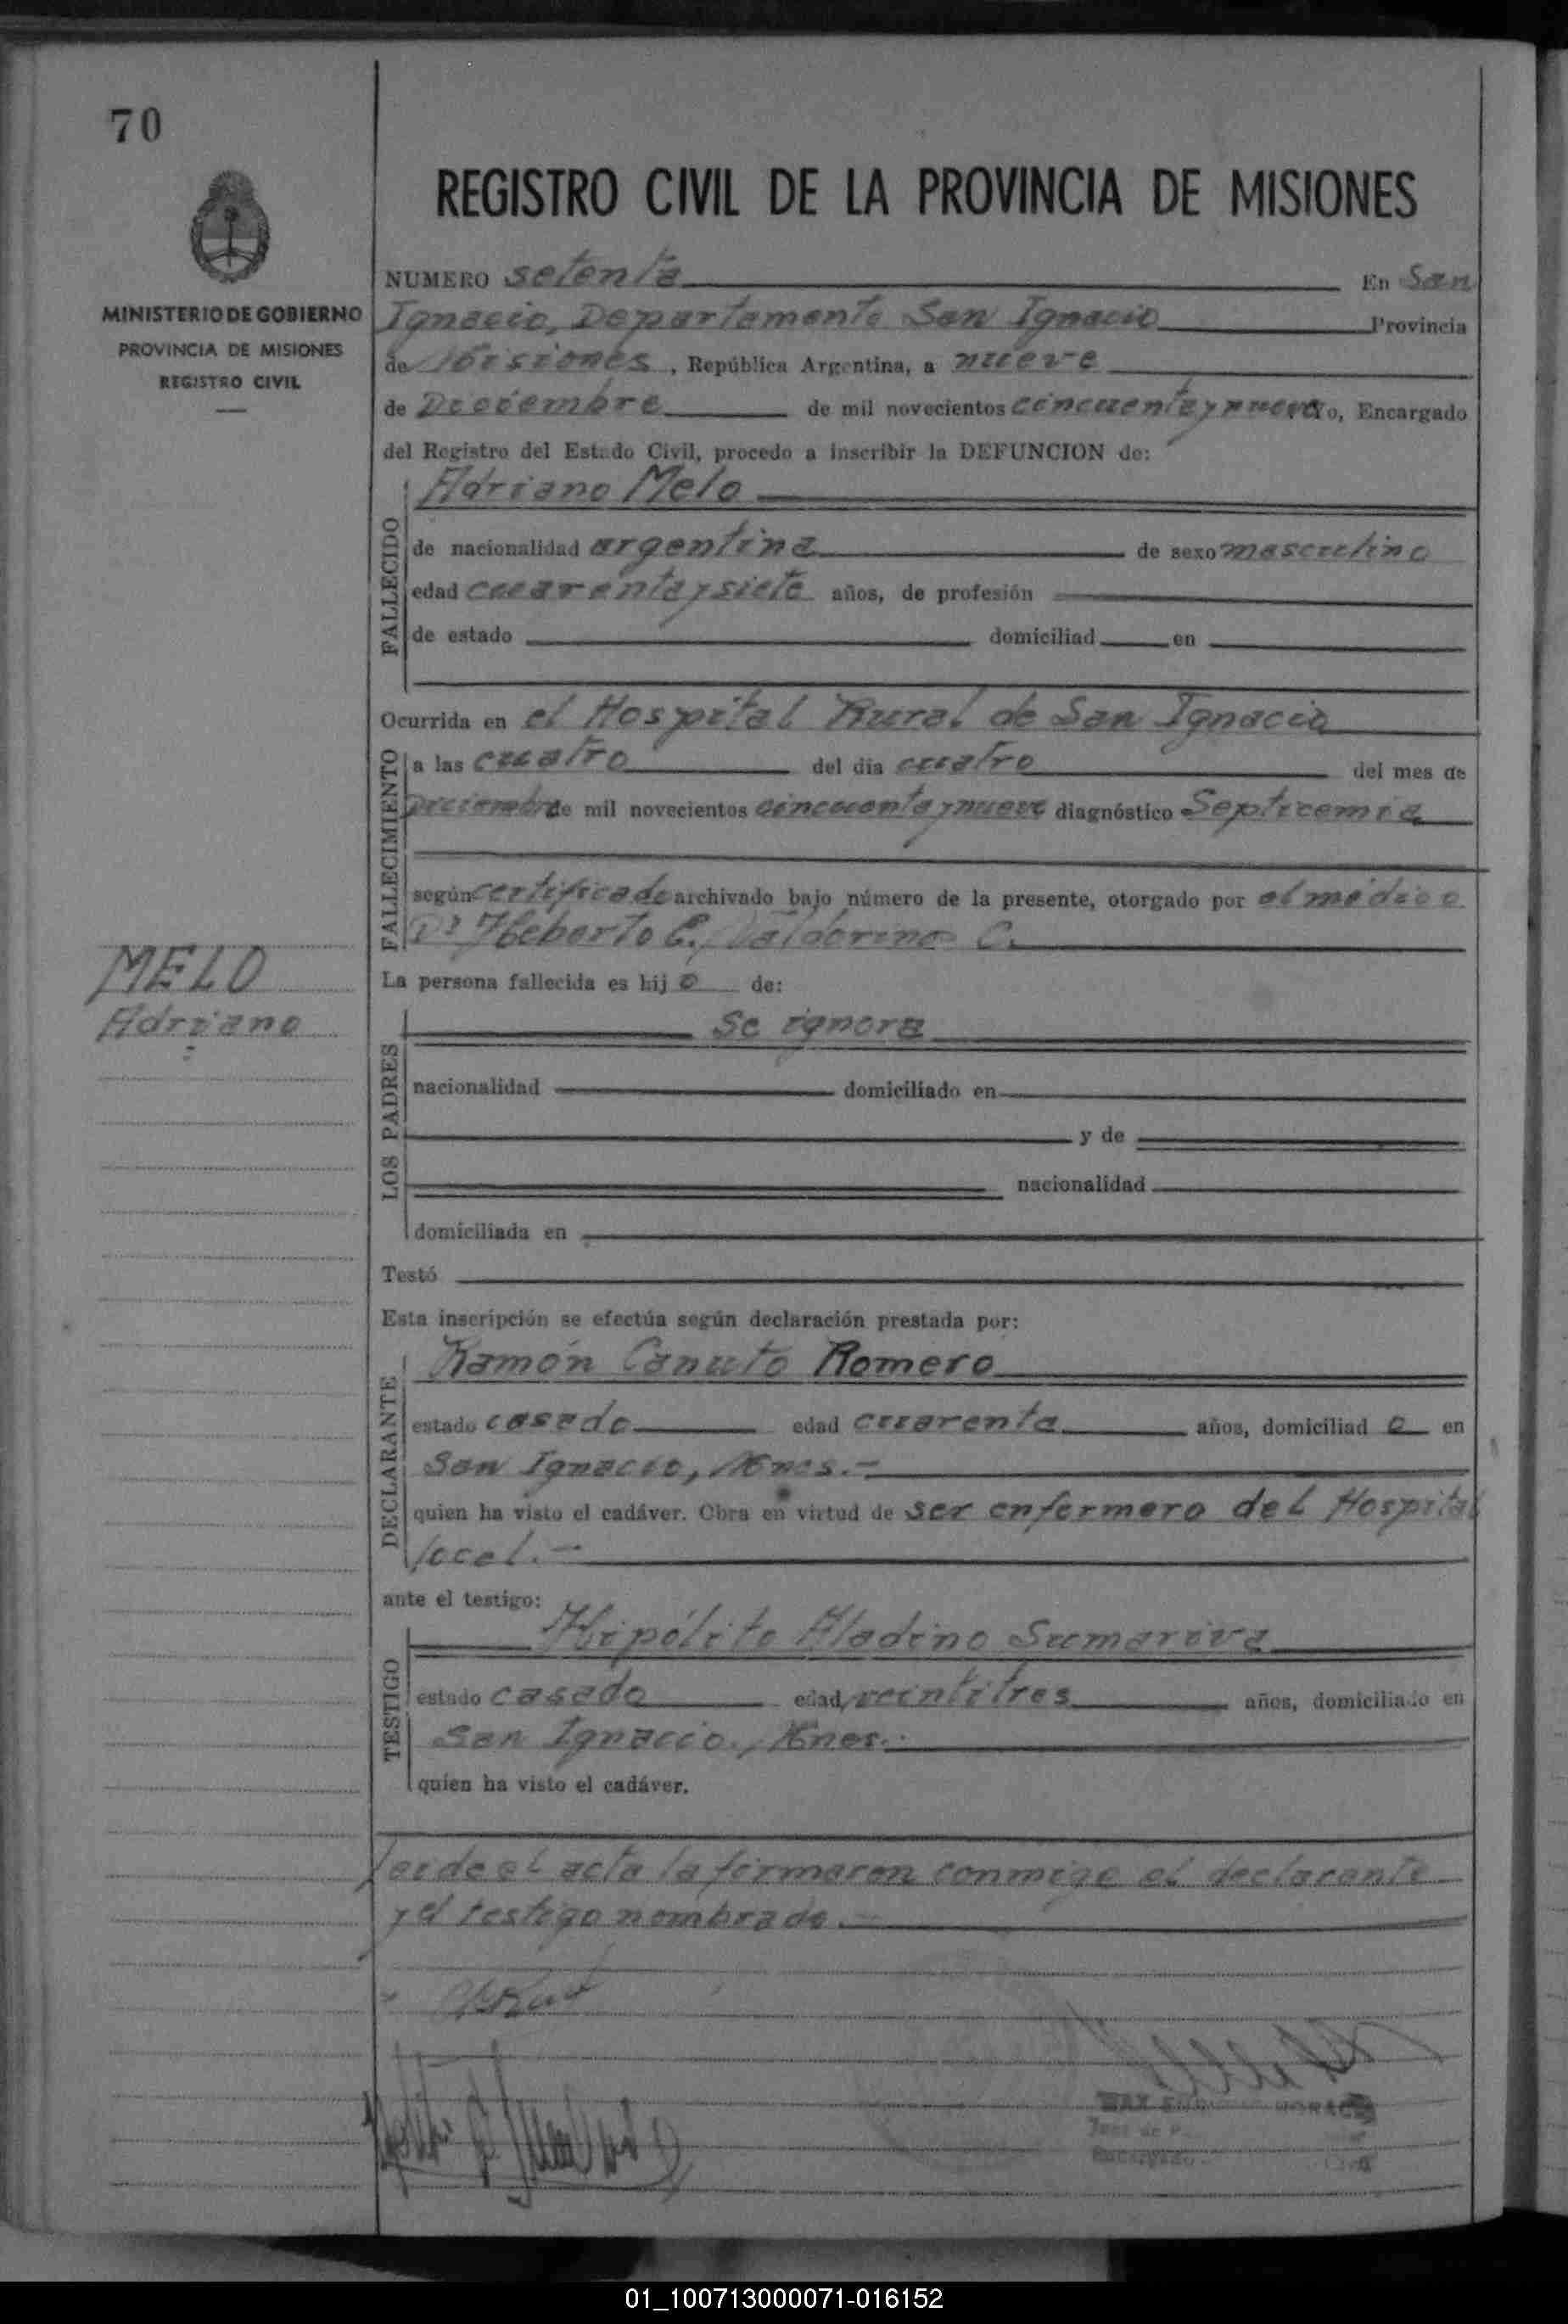 70
REGISTRO CIVIL DE LA PROVINCIA DE MISIONES
MINISTERIO DE GOBIERNO
PROVINCIA DE MISIONES
REGISTRO CIVIL
NUMERO setenta En San
Ignacio, Departamento San Ignacio Provincia
de Misiones, República Argentina, a nueve
de Diciembre de mil novecientos cincuenta y nueve yo, Encargado
del Registro del Estado Civil, procedo a inscribir la DEFUNCION de:
FALLECIDO
Adriano Melo
de nacionalidad argentina de sexo masculino
edad cuarenta y siete años, de profesión
de estado domiciliad en
Ocurrida en el Hospital Rural de San Ignacio
FALLECIMIENTO
a las cuatro del día cuatro del mes de
Diciembre de mil novecientos cincuenta y nueve diagnóstico Septicemia
según certificado archivado bajo número de la presente, otorgado por el médico
Dr Heberto C.
MELO
Adriano
La persona fallecida es hijo de:
LOS PADRES
Se ignora
nacionalidad domiciliado en
y de
nacionalidad
domiciliada en
Testó
Esta inscripción se efectúa según declaración prestada por:
DECLARANTE
Ramón Canuto Romero
estado casado edad cuarenta años, domiciliad o en
San Ignacio, Mnes.-
quien ha visto el cadáver. Obra en virtud de ser enfermero del Hospital
local.-
ante el testigo:
TESTIGO
Hipólito Aladino Sumariva
estado casado edad veintitres años, domiciliado en
San Ignacio., Mnes.
quien ha visto el cadáver.
Leida el acta la firmaron conmigo el declarante
y el testigo nombrado.-
01_100713000071-016152